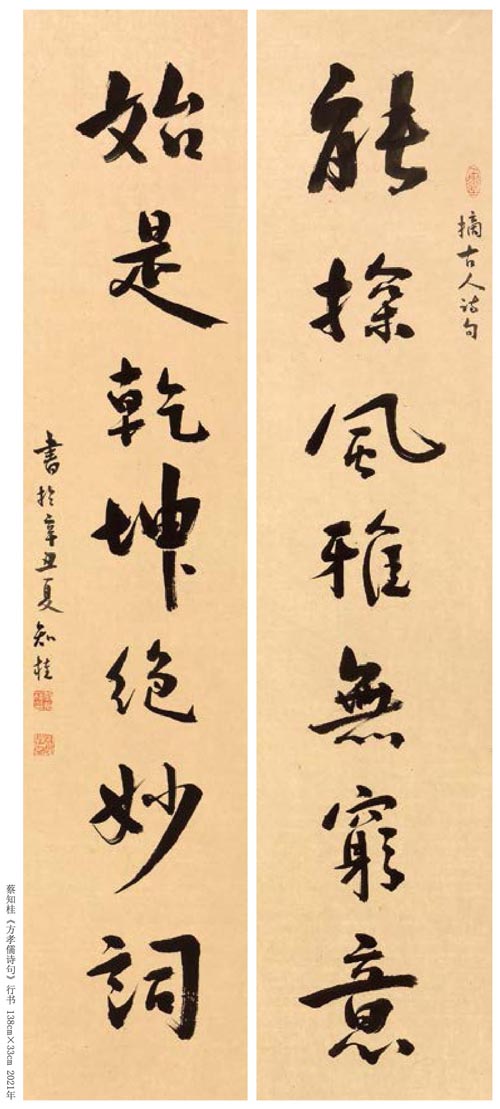 摘古人诗句
能探风雅無窮意
始是乾坤绝妙詞
書於辛丑夏知桂
蔡知桂《方孝儒诗句》行书 138cm×33cm 2021年